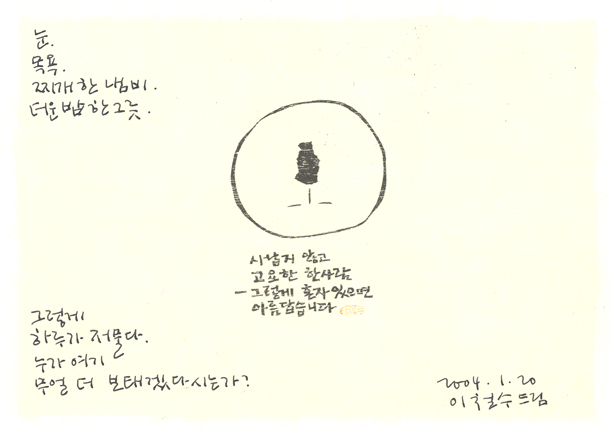 눈.
목욕.
찌개 한 냄비.
더운밥 한 그릇.
사납지 않고
고요한 한사람
- 그렇게 혼자 있으면
아름답습니다
그렇게
하루가 저물다.
누가 여기
무얼 더 보태겠다시는가?
2004.1.20
이철수 드림